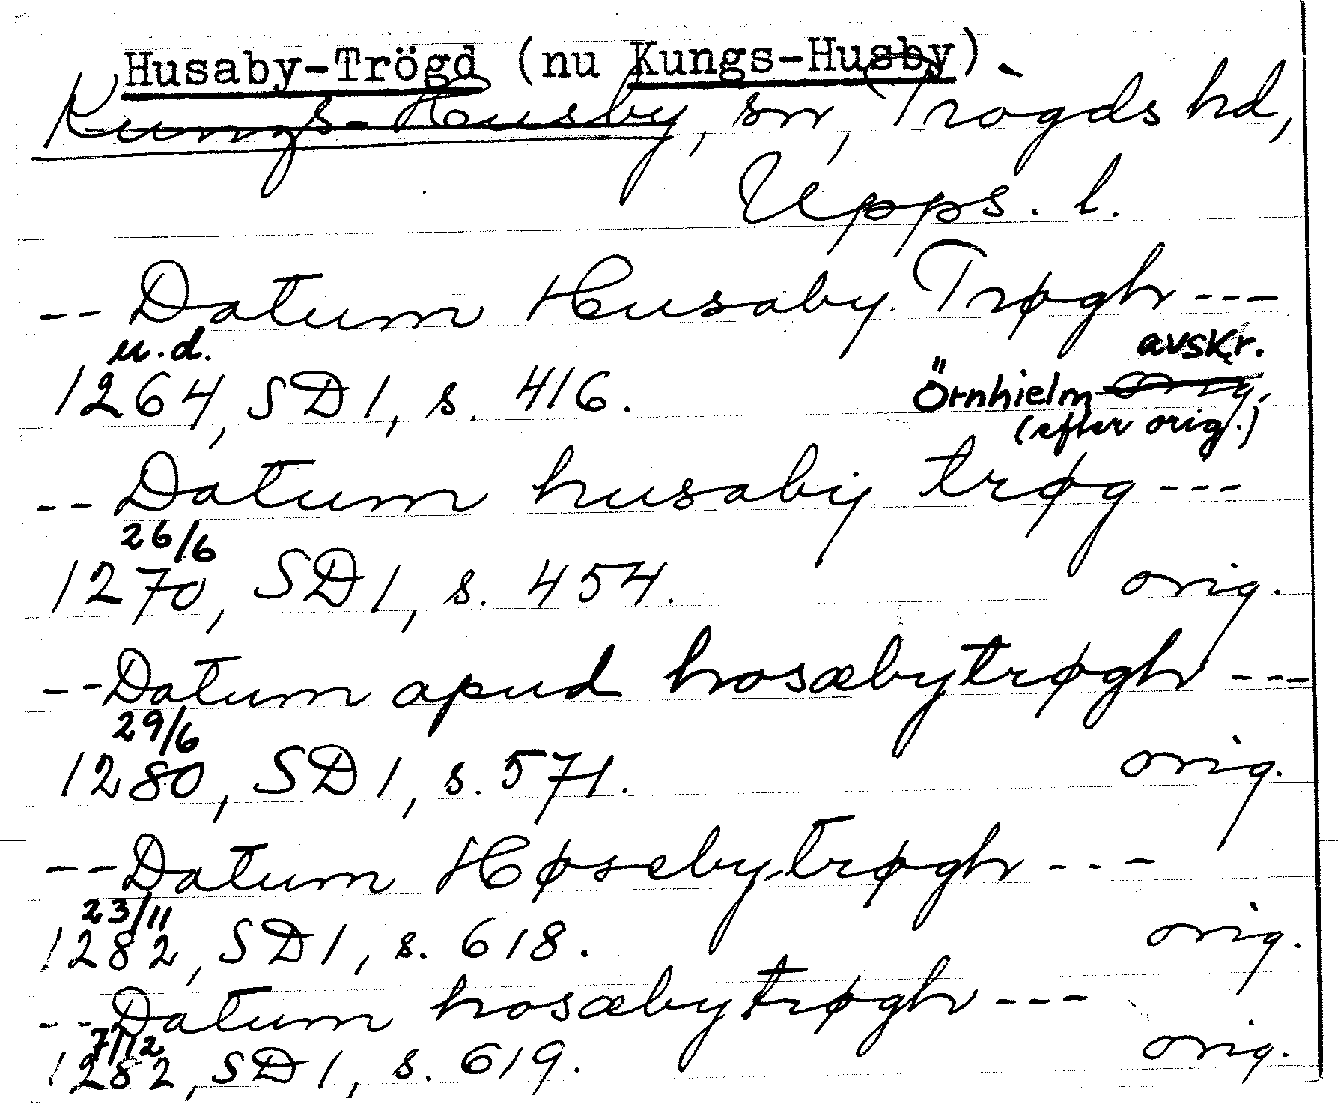 Husaby-Trögd (nu Kungs-Husby)
Kungs-Husby, sn, Trögds hd,
Upps. l.
-- Datum Husaby Trøgh ---
u.d. avskr.
1264, SD 1, s. 416. Örnhielm orig.
(efter orig.)
-- Datum husaby trøg ---
26/6
1270, SD 1, s. 454. orig.
-- Datum apud hosæbytrøgh ---
29/6
1280, SD 1, s. 571. orig.
-- Datum Høsebytrøgh ---
23/11
1282, SD 1, s. 618. orig.
-- Datum hosæbytrøgh ---
7/12
1282, SD 1, s. 619. orig.